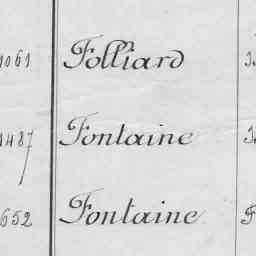 1061 Folliard
1487 Fontaine
652 Fontaine